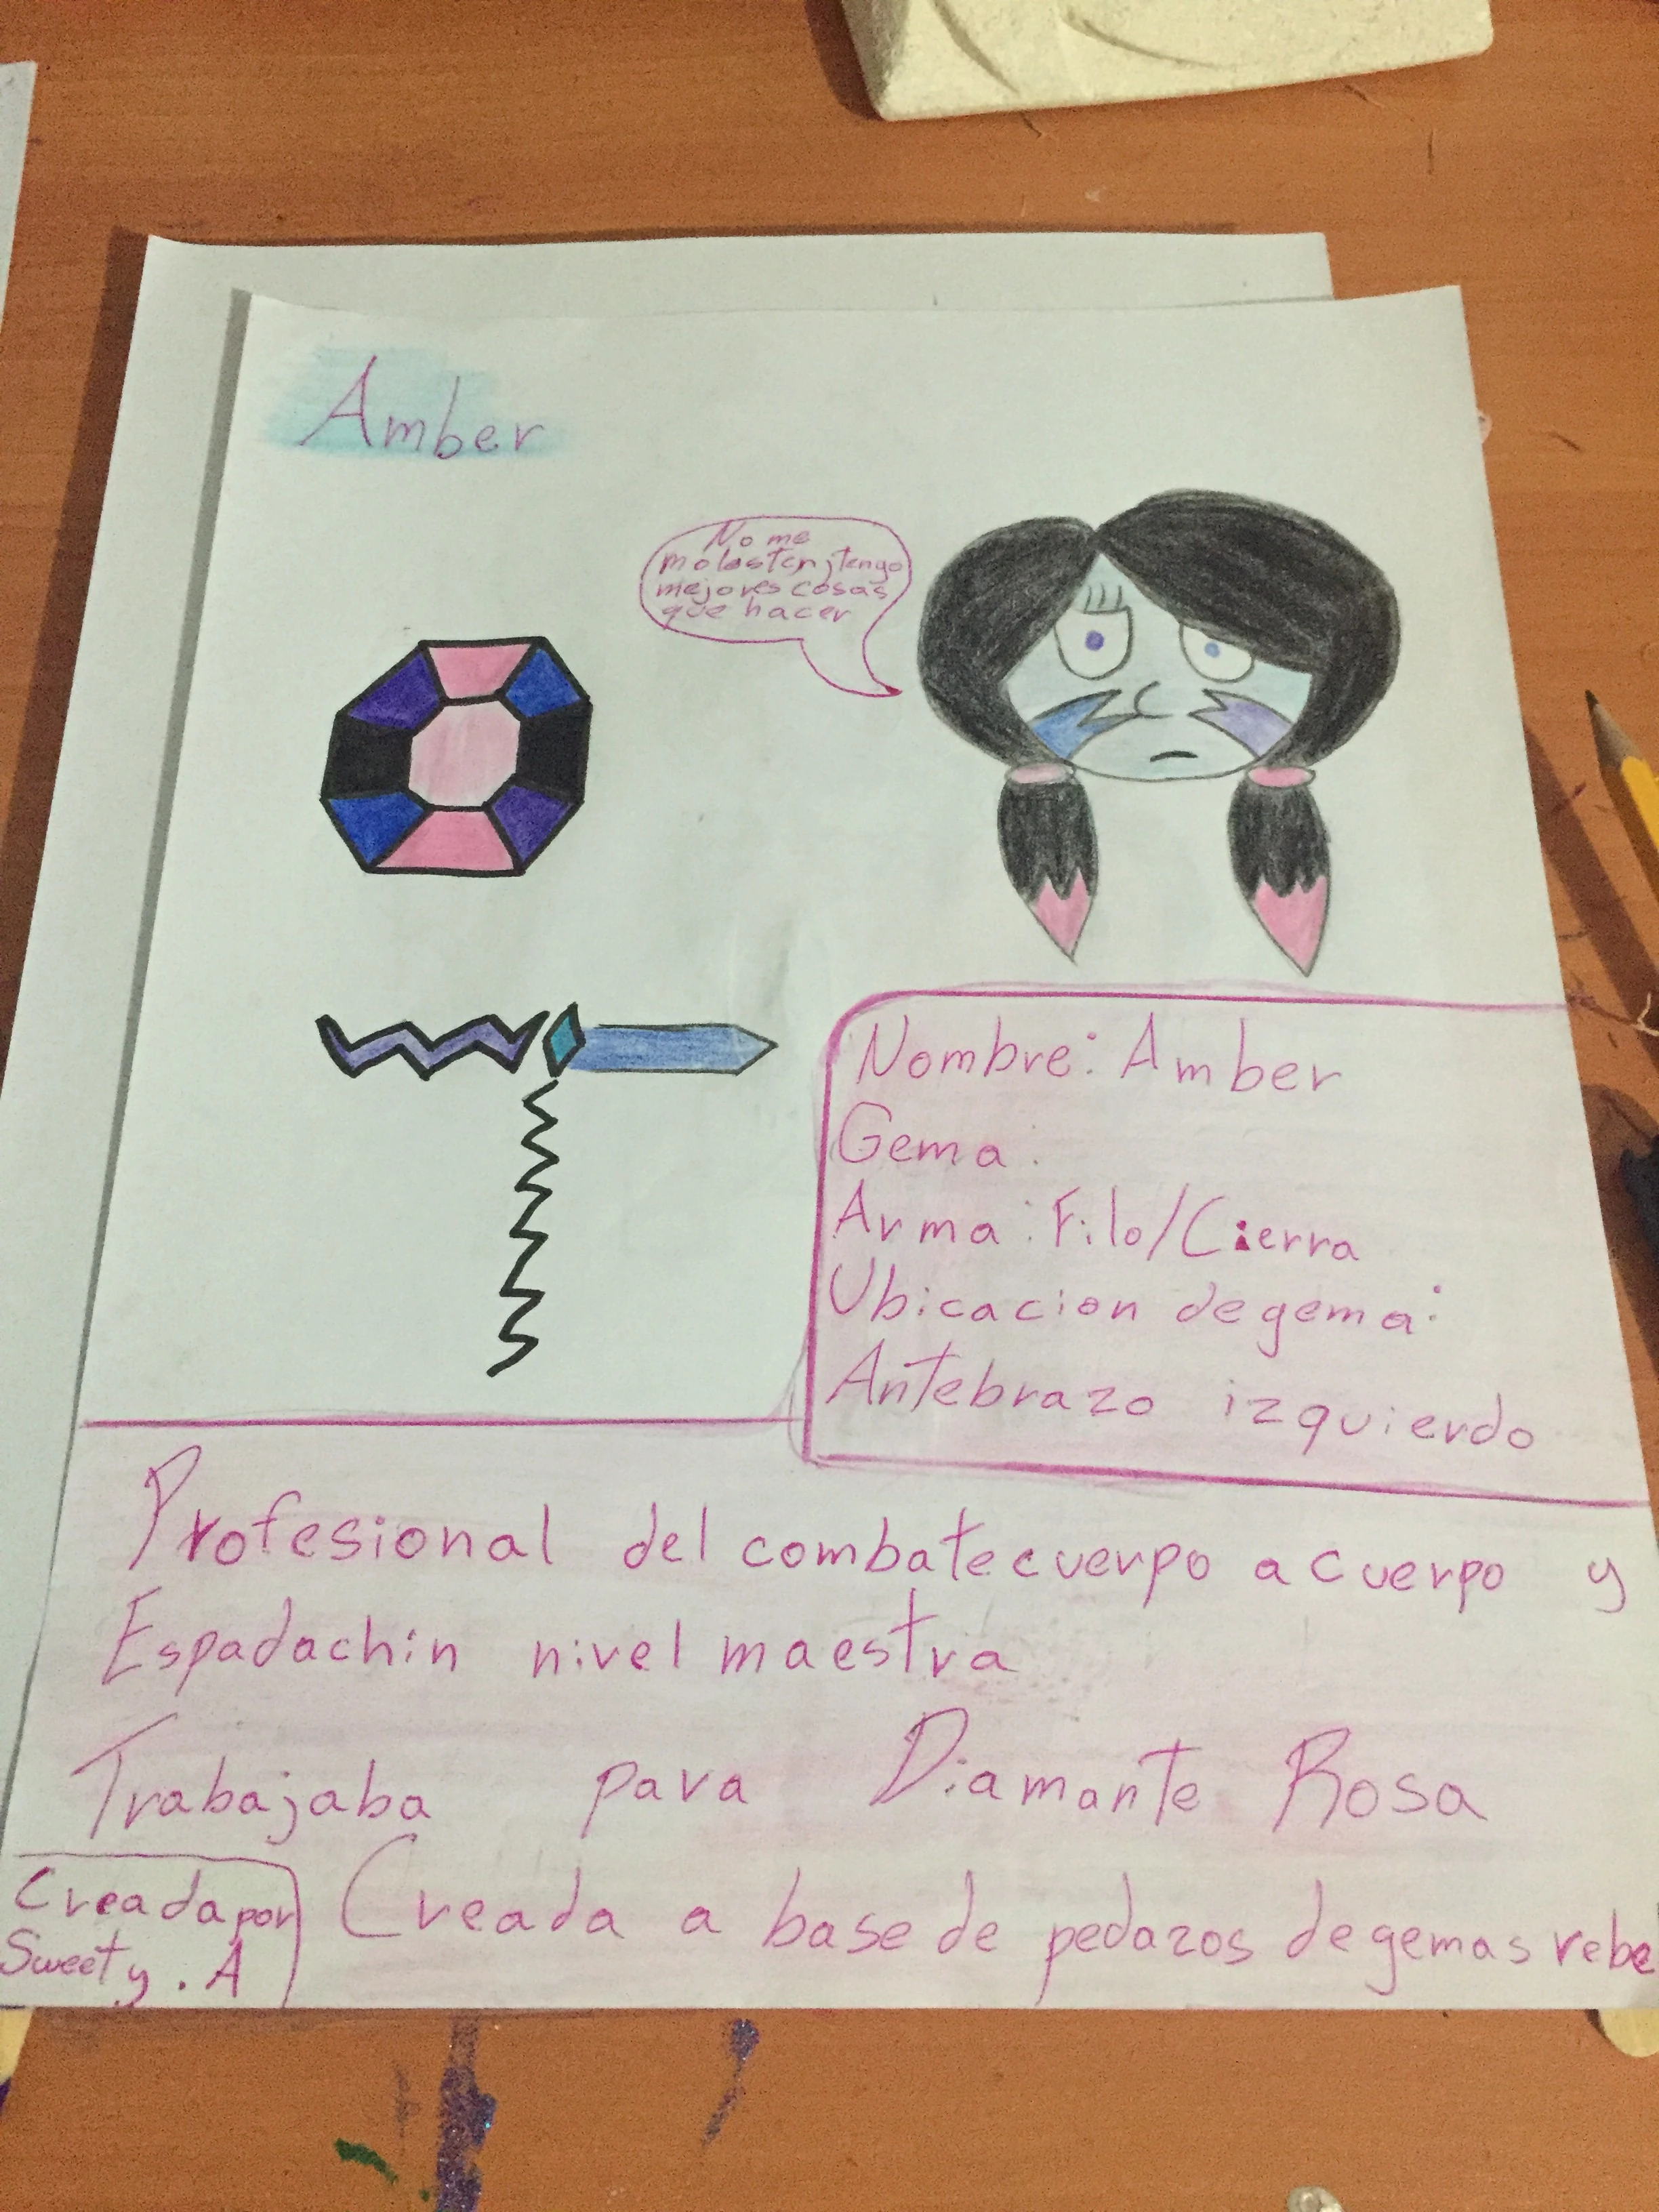 Amber
No me
molesten, tengo
mejores cosas
que hacer
Nombre: Amber
Gema:
Arma: Filo/Cierra
Ubicacion de gema:
Antebrazo izquierdo
Profesional del combate cuerpo a cuerpo y
Espadachin nivel maestra
Trabajaba para Diamante Rosa
Creada a base de pedazos de gemas rebe
Creada por
Sweety. A